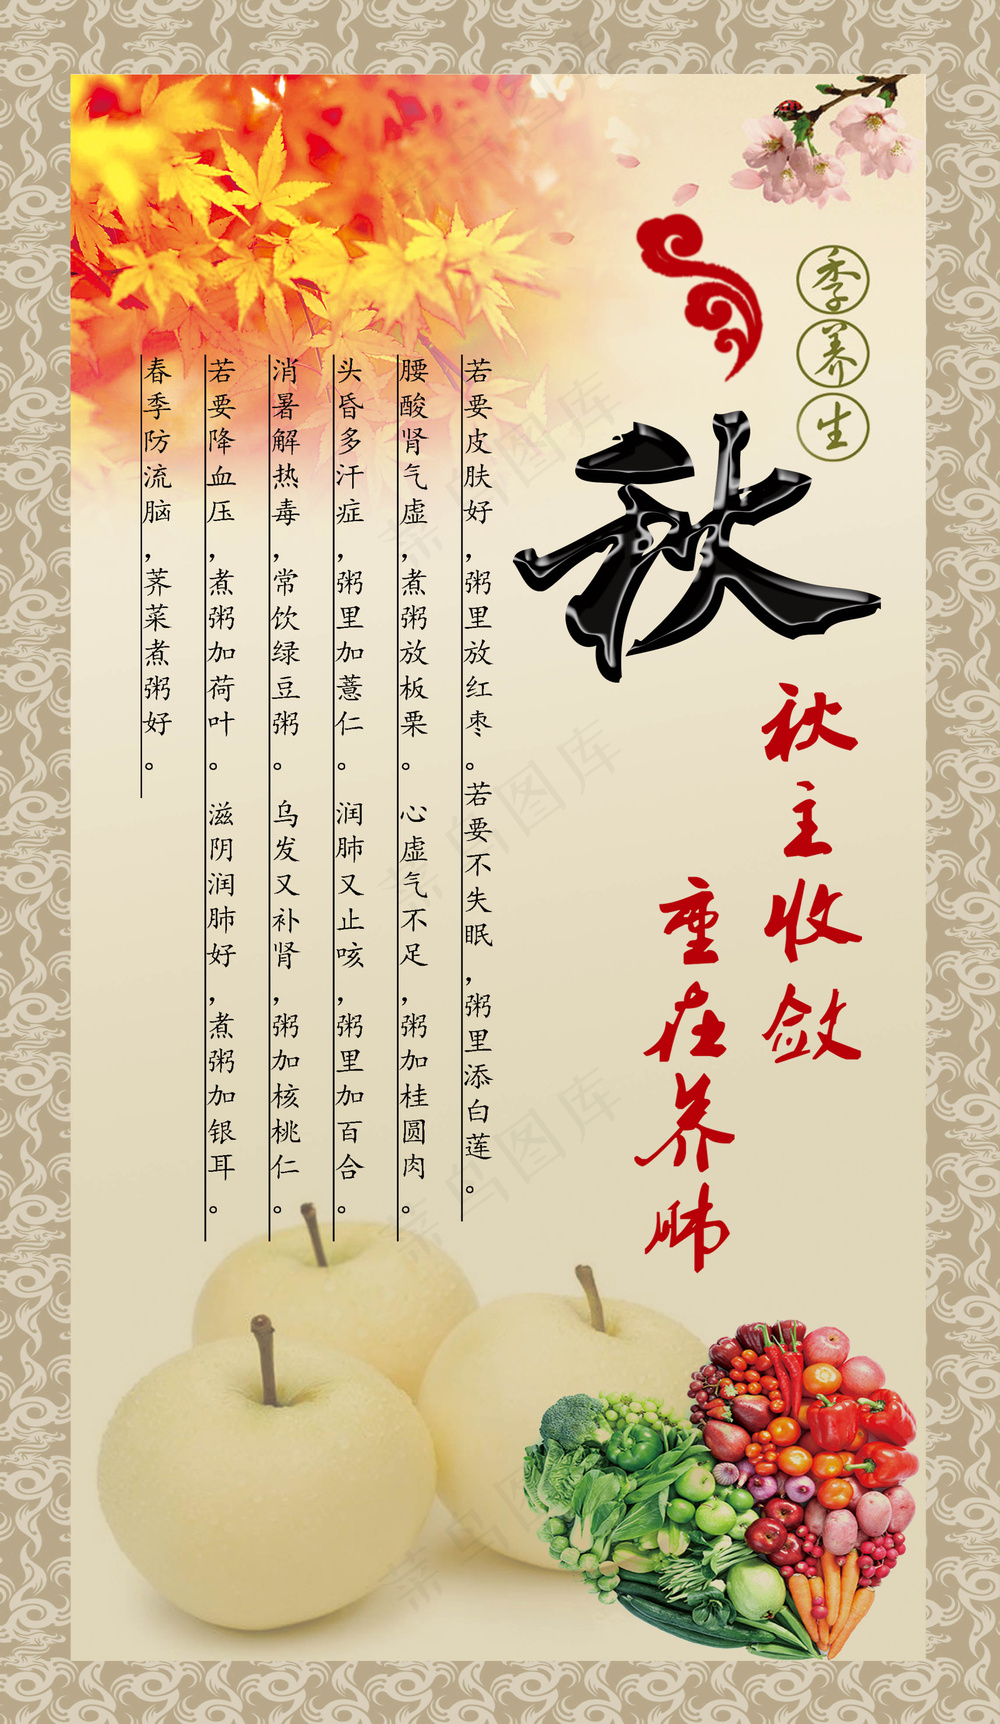 季养生
秋
秋主收敛
重在养肺
若要皮肤好，粥里放红枣。若要不失眠，粥里添白莲。
腰酸肾气虚，煮粥放板栗。心虚气不足，粥加桂圆肉。
头昏多汗症，粥里加薏仁。润肺又止咳，粥里加百合。
消暑解热毒，常饮绿豆粥。乌发又补肾，粥加核桃仁。
若要降血压，煮粥加荷叶。滋阴润肺好，煮粥加银耳。
春季防流脑，荠菜煮粥好。
菜鸟图库